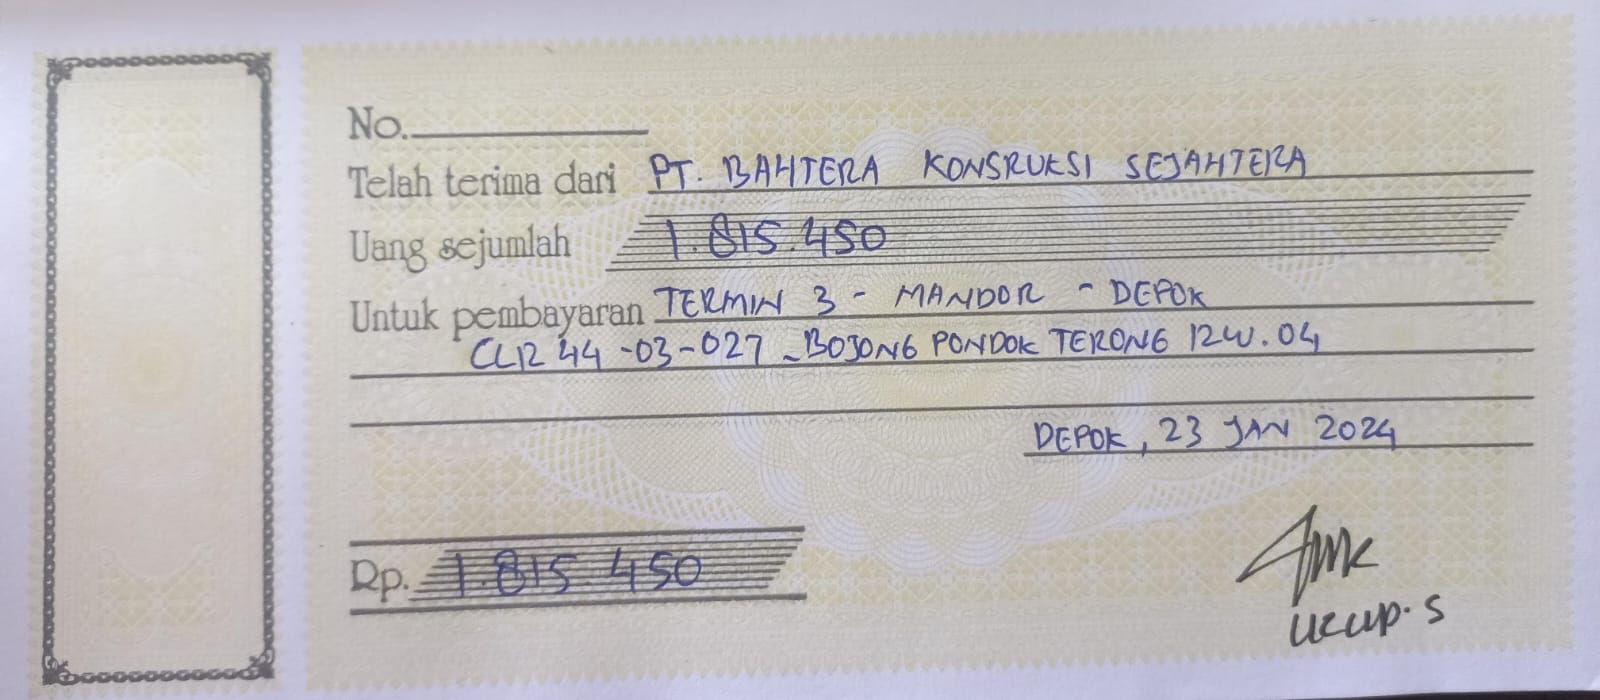 No.
Telah terima dari PT. BAHTERA KONSRUKSI SEJAHTERA
Uang sejumlah 1.815.450
Untuk pembayaran TERMIN 3 - MANDOR - DEPOK
CLR 44 -03-027 - BOJONG PONDOK TERONG RW.04
DEPOK, 23 JAN 2024
Rp. 1.815.450
UCUP.S